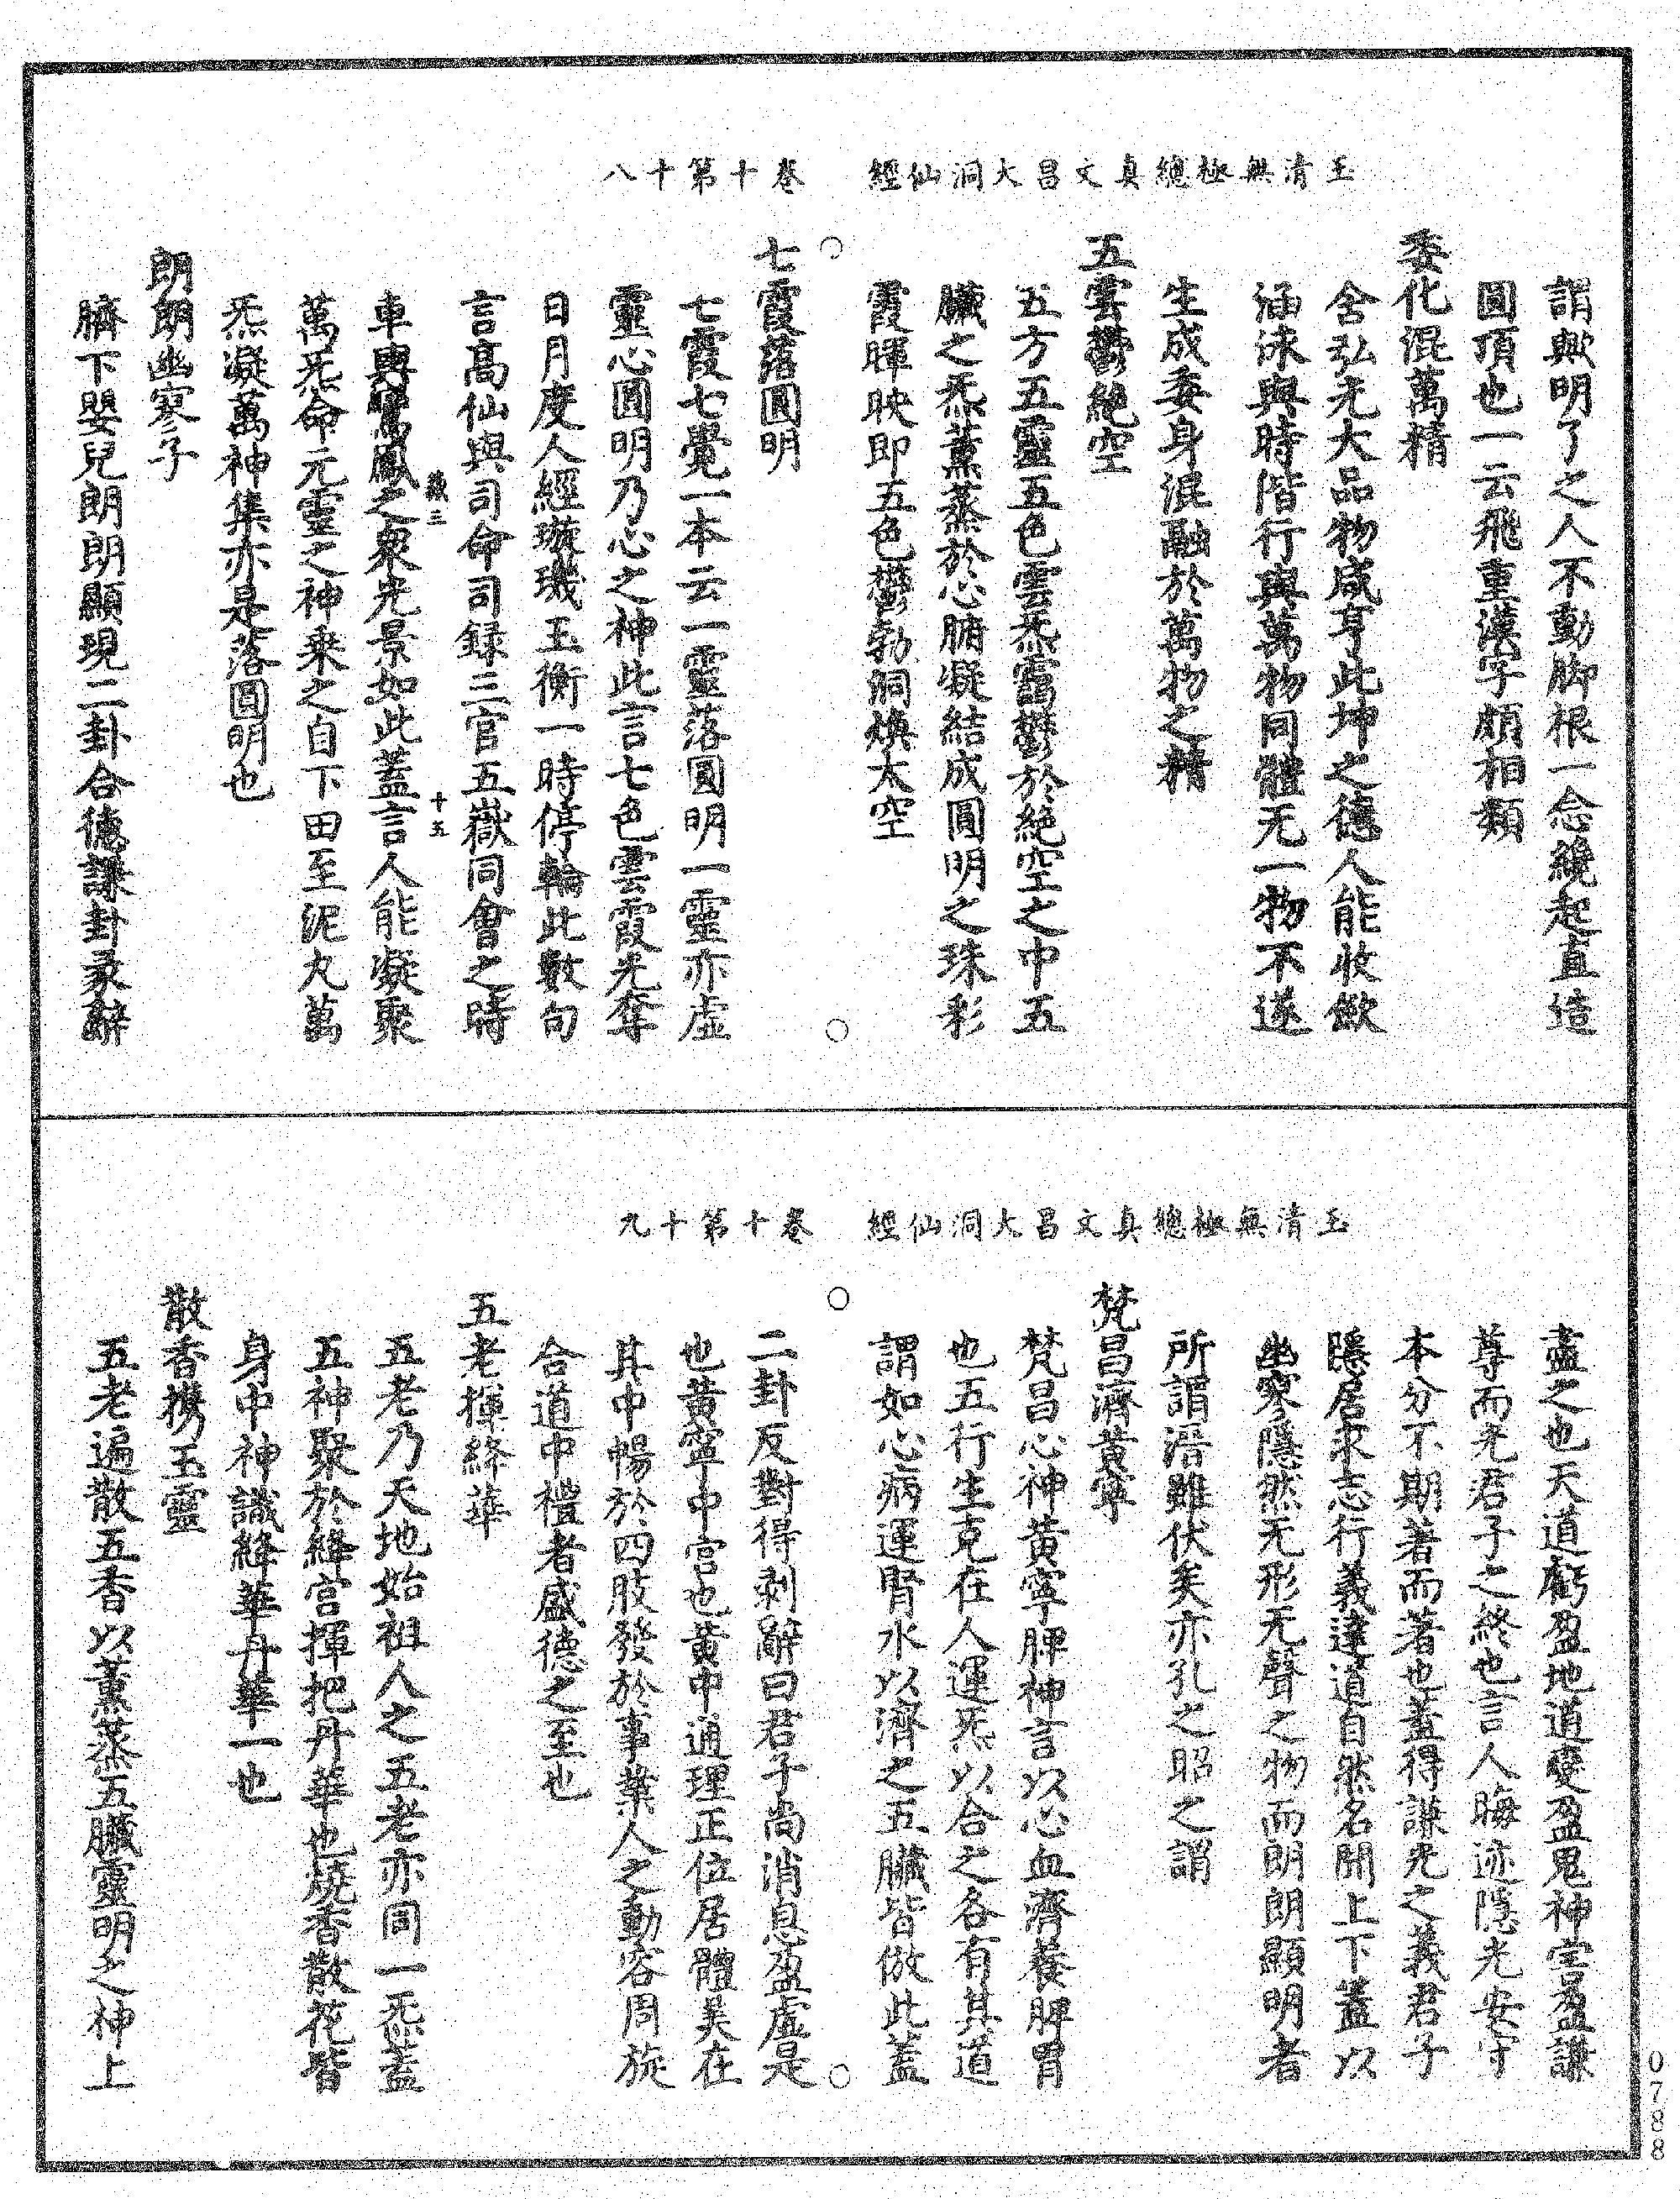 玉清無極總真文昌大洞仙經　卷十第十八
謂歟明了之人不動脚根一念纔起直造
圓頂也一云飛重漢字頗相類
委化混萬精
含弘光大品物咸亨此坤之德人能收斂
涵泳與時偕行與萬物同體无一物不遂
生成委身混融於萬物之精
五雲鬱絕空
五方五靈五色雲炁靄鬱於絕空之中五
臟之炁薰蒸於心腑凝結成圓明之珠彩
霞暉映即五色鬱勃洞煥太空
七霞落圓明
七霞七覺一本云一靈落圓明一靈亦虛
靈心圓明乃心之神此言七色雲霞光奪
日月度人經璇璣玉衡一時停輪此數句
言高仙與司命司録三官五嶽同會之時
車輿鸞鳳之衆光景如此蓋言人能凝聚
萬炁命元靈之神乗之自下田至泥丸萬
炁凝萬神集亦是落圓明也
朗朗幽寥子
臍下嬰兒朗朗顯現二卦合德謙卦彖辭
三
十五
玉清無極總真文昌大洞仙經　卷十第十九
盡之也天道虧盈地道變盈鬼神害盈謙
尊而光君子之終也言人晦迹隱光安守
本分不期著而著也蓋得謙光之義君子
隱居求志行義達道自然名聞上下蓋以
幽寥隱然无形无聲之物而朗朗顯明者
所謂潛雖伏矣亦孔之昭之謂
梵昌濟黃寧
梵昌心神黃寧脾神言以心血濟養脾胃
也五行生克在人運炁以合之各有其道
謂如心病運腎水以濟之五臟皆倣此蓋
二卦反對得剥辭曰君子尚消息盈虛是
也黃寧中宫也黃中通理正位居體美在
其中暢於四肢發於事業人之動容周旋
合道中禮者盛德之至也
五老揮絳華
五老乃天地始祖人之五老亦同一炁蓋
五神聚於絳宫揮把丹華也燒香散花皆
身中神識絳華丹華一也
散香携玉靈
五老遍散五香以薰蒸五臟靈明之神上
0788